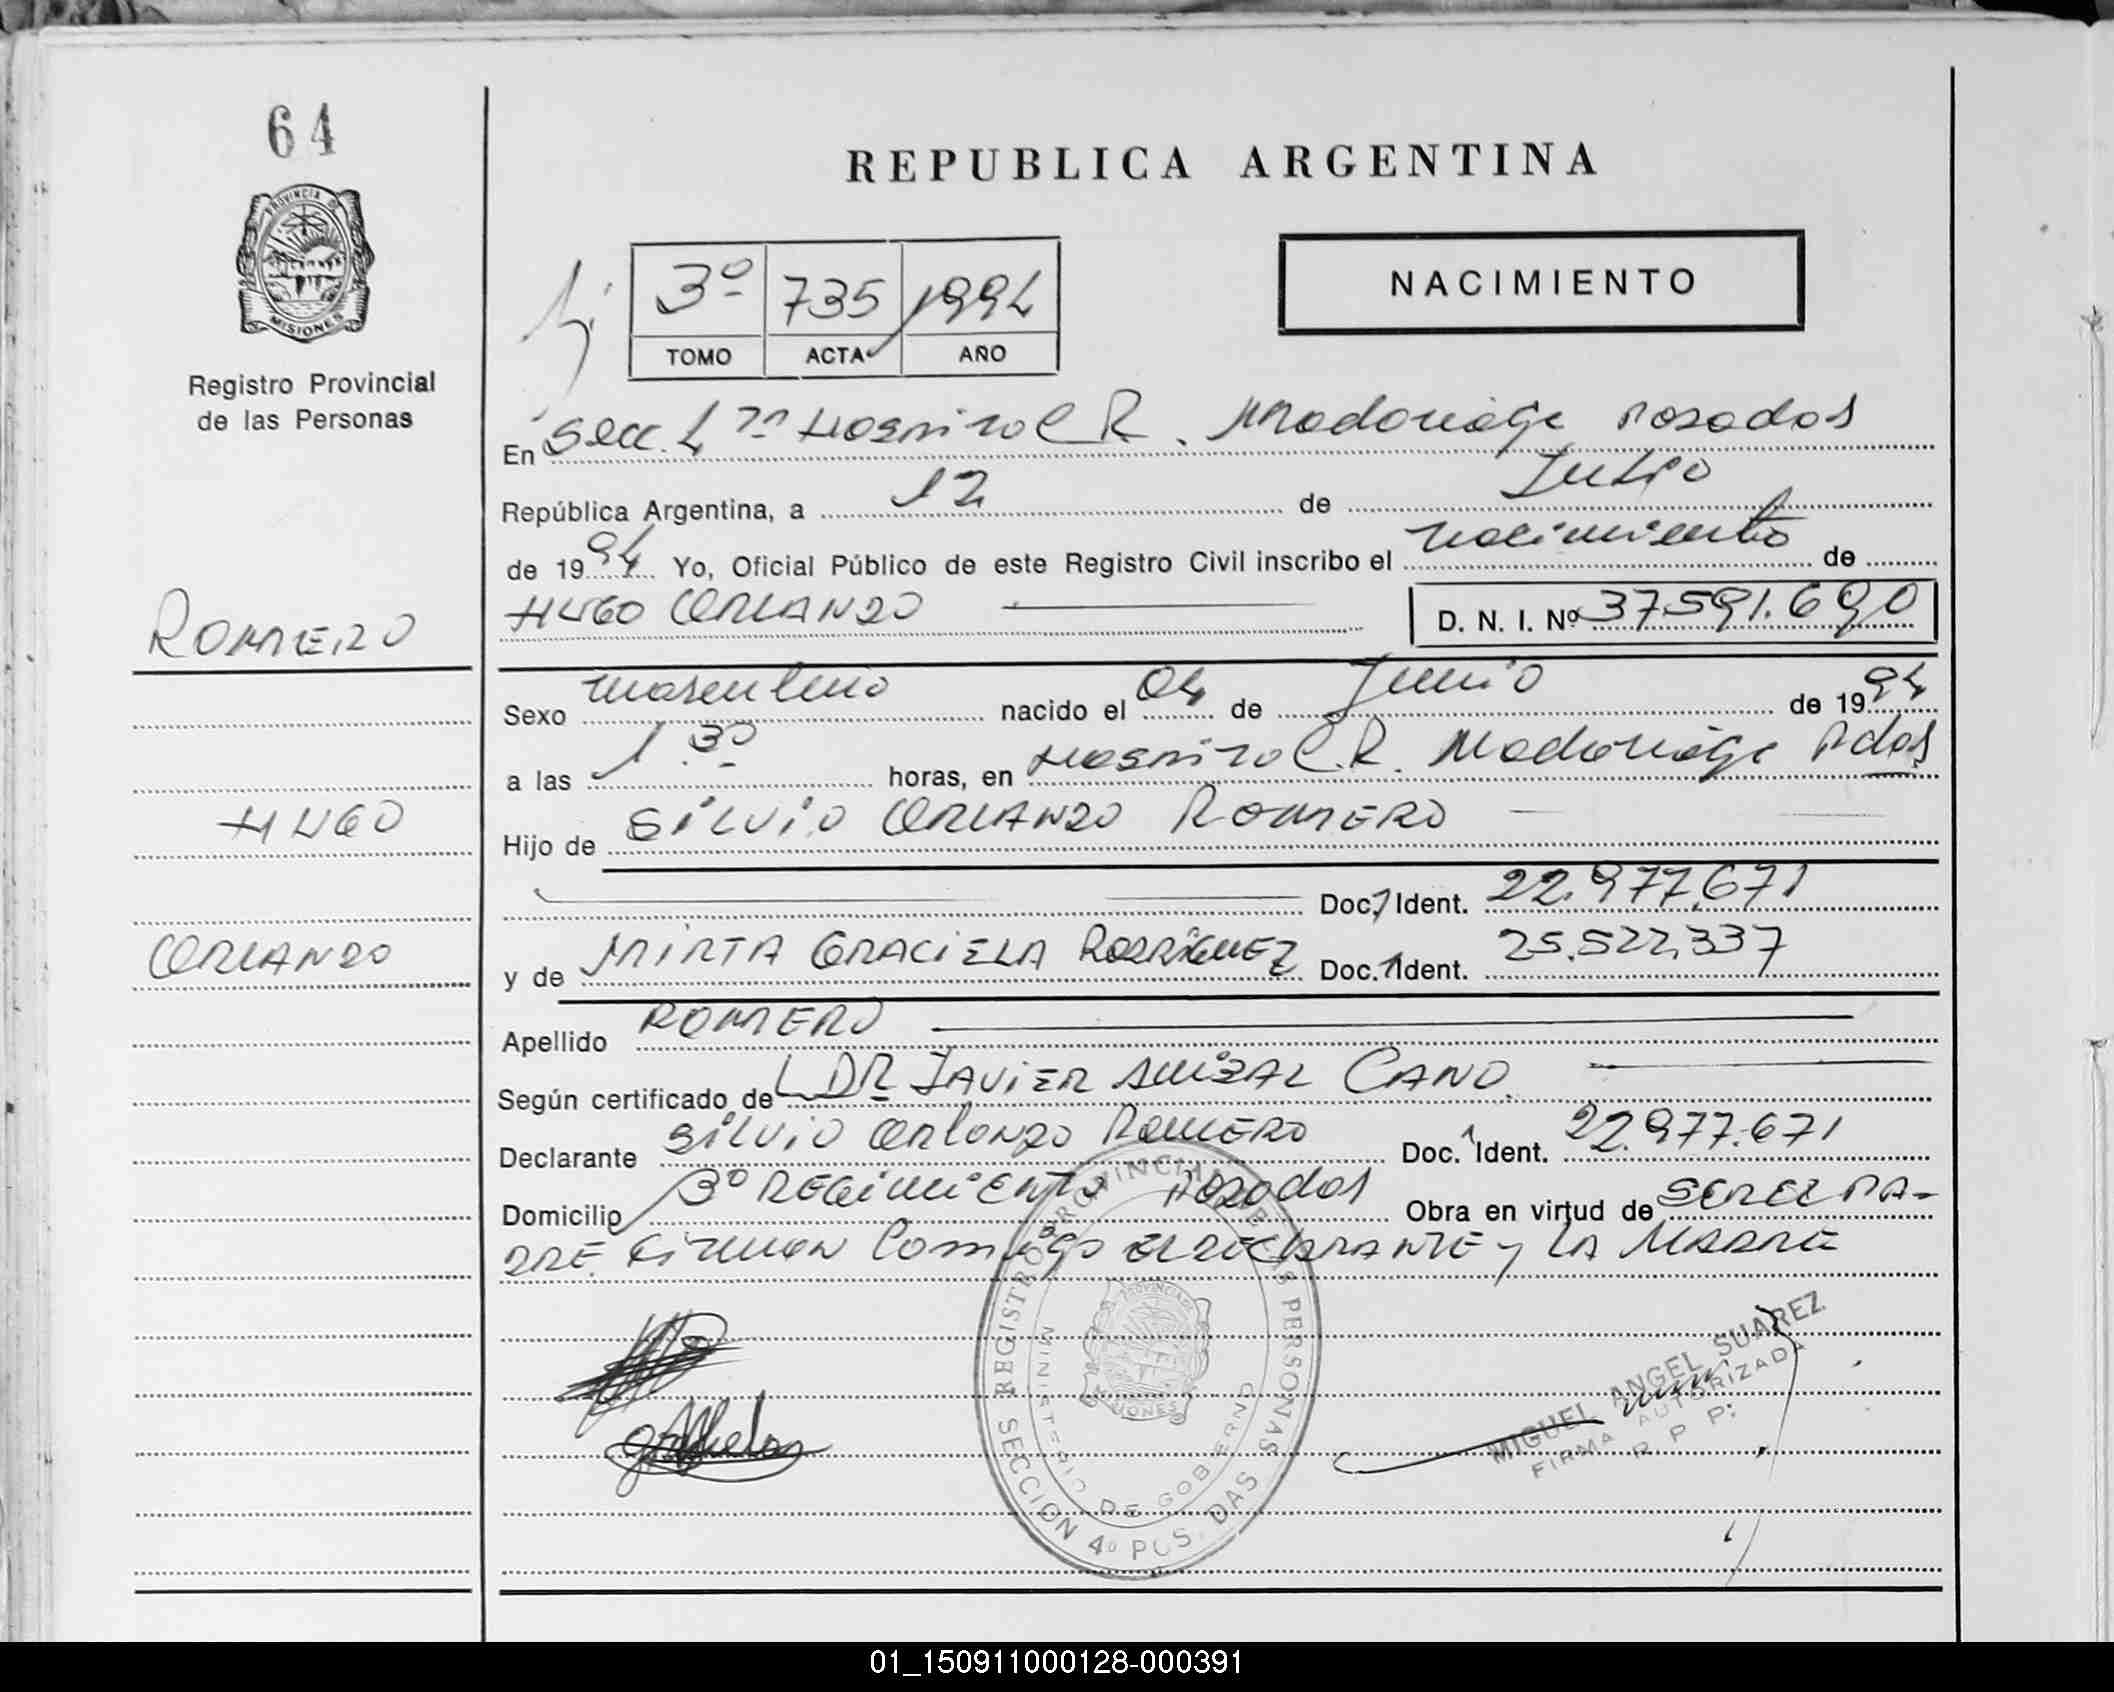 64
PROVINCIA DE
MISIONES
Registro Provincial
de las Personas
ROMERO
HUGO
ORLANDO
REPUBLICA ARGENTINA
3º 735 1994
TOMO ACTA AÑO
NACIMIENTO
En Secc. 4ta Hospital R. Madariaga Posadas
República Argentina, a 12 de Julio
de 1994 Yo, Oficial Público de este Registro Civil inscribo el nacimiento de
HUGO ORLANDO D. N. I. Nº 37.591.690
Sexo masculino nacido el 04 de Junio de 1994
a las 1.30 horas, en Hospital R. Madariaga Pdas
Hijo de SILVIO ORLANDO ROMERO
Doc. Ident. 22.977.671
y de MIRTA GRACIELA RODRIGUEZ Doc. Ident. 25.522.337
Apellido ROMERO
Según certificado de DR JAVIER CANO
Declarante SILVIO Orlando ROMERO Doc. Ident. 22.977.671
Domicilio 3º REGimiento Posadas Obra en virtud de SER EL PA-
DRE. Firman Conmigo EL DECLARANTE y LA MADRE
REGISTRO PROVINCIAL DE LAS PERSONAS
MINISTERIO DE GOBIERNO
PROVINCIA DE
MISIONES
SECCION 4º POSADAS
MIGUEL ANGEL SUAREZ
FIRMA AUTORIZADA
R. P. P.
01_150911000128-000391